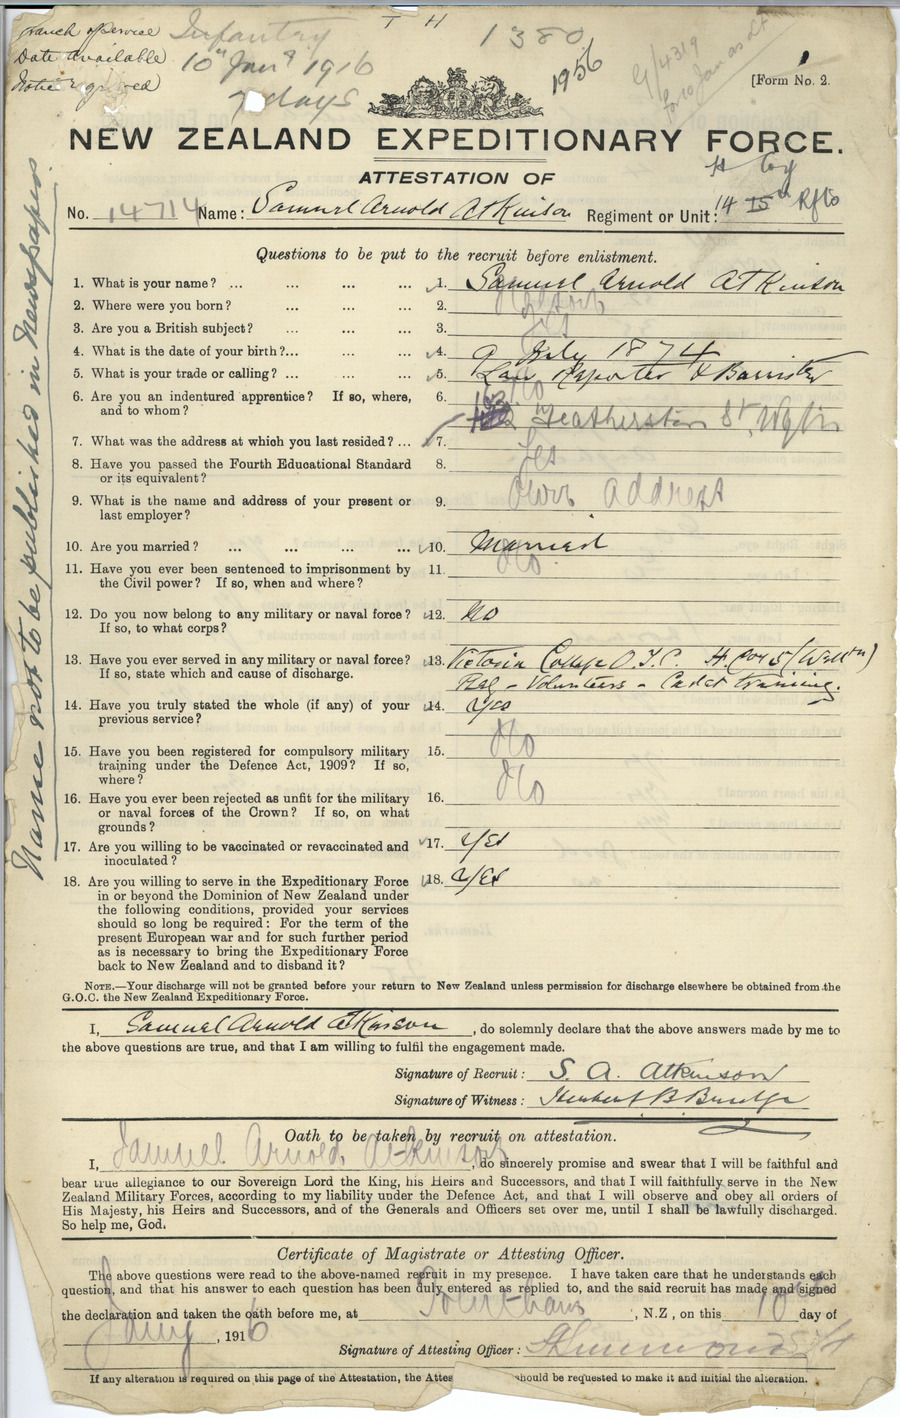 Branch of Service Infantry
T H
1380
Date available 10th Jany 1916
1956
Notice required 7 days
G/4319
[Form No. 2.
NEW ZEALAND EXPEDITIONARY FORCE.
ATTESTATION OF
H Coy
No. 14714 Name: Samuel Arnold Atkinson Regiment or Unit: 14 15th Rfts
Name not to be published in Newspapers.
Questions to be put to the recruit before enlistment.
1. What is your name? ... ... ... ... 1. Samuel Arnold Atkinson
2. Where were you born? ... ... ... 2.
3. Are you a British subject? ... ... ... 3. Yes
4. What is the date of your birth?... ... ... 4. 9 July 1874
5. What is your trade or calling? ... ... ... 5. Law Reporter & Barrister
6. Are you an indentured apprentice? If so, where, 6. No
and to whom?
7. What was the address at which you last resided? ... 7. Featherston St, Wgtn
8. Have you passed the Fourth Educational Standard 8. Yes
or its equivalent?
9. What is the name and address of your present or 9. Own Address
last employer?
10. Are you married? ... ... ... ... 10. Married
11. Have you ever been sentenced to imprisonment by 11. No
the Civil power? If so, when and where?
12. Do you now belong to any military or naval force? 12. No
If so, to what corps?
13. Have you ever served in any military or naval force? 13. Victoria College O.T.C.
If so, state which and cause of discharge. Volunteers – Cadet training.
14. Have you truly stated the whole (if any) of your 14. Yes
previous service?
15. Have you been registered for compulsory military 15. No
training under the Defence Act, 1909? If so,
where?
16. Have you ever been rejected as unfit for the military 16. No
or naval forces of the Crown? If so, on what
grounds?
17. Are you willing to be vaccinated or revaccinated and 17. Yes
inoculated?
18. Are you willing to serve in the Expeditionary Force 18. Yes
in or beyond the Dominion of New Zealand under
the following conditions, provided your services
should so long be required: For the term of the
present European war and for such further period
as is necessary to bring the Expeditionary Force
back to New Zealand and to disband it?
NOTE.—Your discharge will not be granted before your return to New Zealand unless permission for discharge elsewhere be obtained from the
G.O.C. the New Zealand Expeditionary Force.
I, Samuel Arnold Atkinson, do solemnly declare that the above answers made by me to
the above questions are true, and that I am willing to fulfil the engagement made.
Signature of Recruit: S. A. Atkinson
Signature of Witness: Herbert B
Oath to be taken by recruit on attestation.
I, Samuel Arnold Atkinson, do sincerely promise and swear that I will be faithful and
bear true allegiance to our Sovereign Lord the King, his Heirs and Successors, and that I will faithfully serve in the New
Zealand Military Forces, according to my liability under the Defence Act, and that I will observe and obey all orders of
His Majesty, his Heirs and Successors, and of the Generals and Officers set over me, until I shall be lawfully discharged.
So help me, God.
Certificate of Magistrate or Attesting Officer.
The above questions were read to the above-named recruit in my presence. I have taken care that he understands each
question, and that his answer to each question has been duly entered as replied to, and the said recruit has made and signed
the declaration and taken the oath before me, at , N.Z, on this 10th day of
Jany, 1916
Signature of Attesting Officer:
If any alteration is required on this page of the Attestation, the Attes should be requested to make it and initial the alteration.